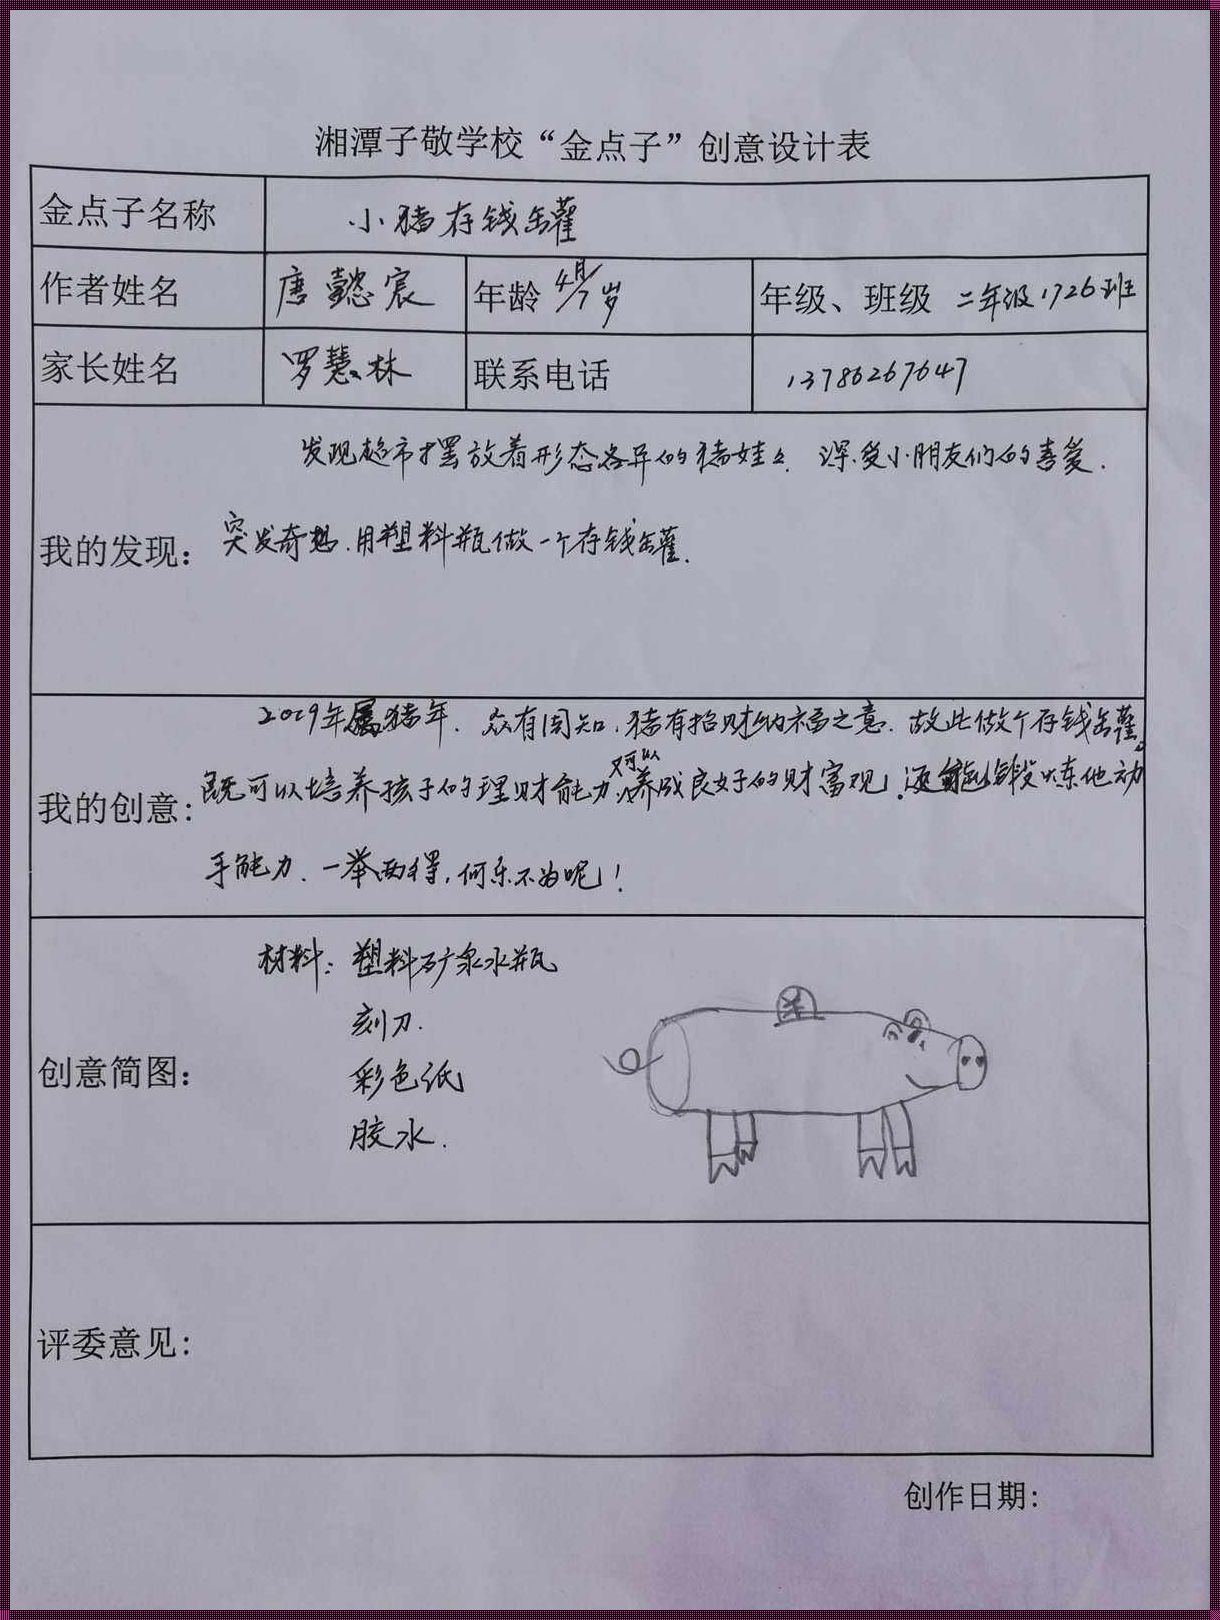 湘潭子敬学校“金点子”创意设计表
金点子名称 小猪存钱罐
作者姓名 唐懿宸 年龄 7岁 年级、班级 二年级1726班
家长姓名 罗慧林 联系电话 13786267647
发现超市摆放着形态各异的猪娃々、深受小朋友们的喜爱.
我的发现: 突发奇想.用塑料瓶做一个存钱罐.
2019年属猪年.众有周知,猪有招财纳福之意.故此做个存钱罐。
又可以
我的创意: 既可以培养孩子的理财能力,养成良好的财富观!还能锻炼他动
手能力.一举两得,何乐不为呢!
材料: 塑料矿泉水瓶
刻刀.
创意简图:
彩色纸
胶水.
评委意见:
创作日期: